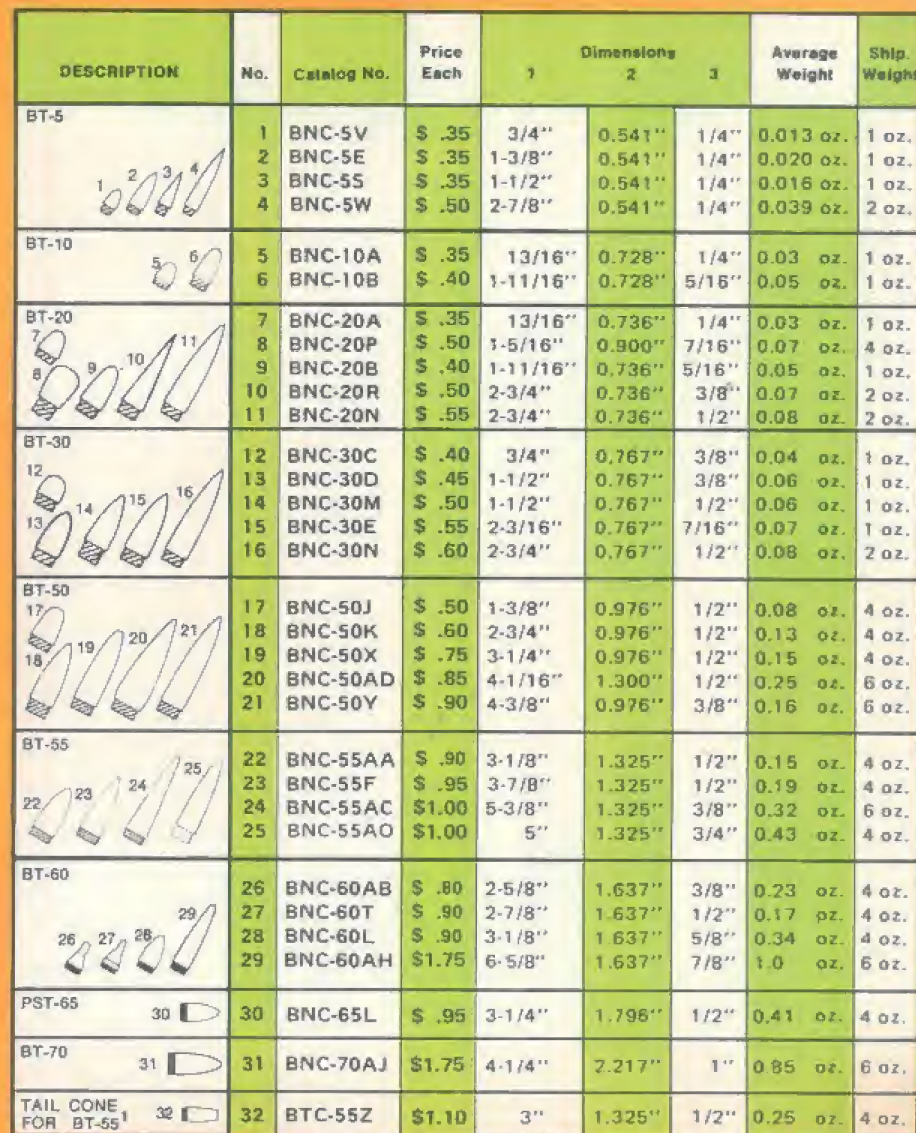 DESCRIPTION No. Catalog No. Price Each Dimensions 1 2 3 Average Weight Ship. Weight
BT-5
1 2 3 4
1 BNC-5V $ .35 3/4" 0.541" 1/4" 0.013 oz. 1 oz.
2 BNC-5E $ .35 1-3/8" 0.541" 1/4" 0.020 oz. 1 oz.
3 BNC-5S $ .35 1-1/2" 0.541" 1/4" 0.016 oz. 1 oz.
4 BNC-5W $ .50 2-7/8" 0.541" 1/4" 0.039 oz. 2 oz.
BT-10
5 6
5 BNC-10A $ .35 13/16" 0.728" 1/4" 0.03 oz. 1 oz.
6 BNC-10B $ .40 1-11/16" 0.728" 5/16" 0.05 oz. 1 oz.
BT-20
7 8 9 10 11
7 BNC-20A $ .35 13/16" 0.736" 1/4" 0.03 oz. 1 oz.
8 BNC-20P $ .50 1-5/16" 0.900" 7/16" 0.07 oz. 4 oz.
9 BNC-20B $ .40 1-11/16" 0.736" 5/16" 0.05 oz. 1 oz.
10 BNC-20R $ .50 2-3/4" 0.736" 3/8" 0.07 oz. 2 oz.
11 BNC-20N $ .55 2-3/4" 0.736" 1/2" 0.08 oz. 2 oz.
BT-30
12 13 14 15 16
12 BNC-30C $ .40 3/4" 0.767" 3/8" 0.04 oz. 1 oz.
13 BNC-30D $ .45 1-1/2" 0.767" 3/8" 0.06 oz. 1 oz.
14 BNC-30M $ .50 1-1/2" 0.767" 1/2" 0.06 oz. 1 oz.
15 BNC-30E $ .55 2-3/16" 0.767" 7/16" 0.07 oz. 1 oz.
16 BNC-30N $ .60 2-3/4" 0.767" 1/2" 0.08 oz. 2 oz.
BT-50
17 18 19 20 21
17 BNC-50J $ .50 1-3/8" 0.976" 1/2" 0.08 oz. 4 oz.
18 BNC-50K $ .60 2-3/4" 0.976" 1/2" 0.13 oz. 4 oz.
19 BNC-50X $ .75 3-1/4" 0.976" 1/2" 0.15 oz. 4 oz.
20 BNC-50AD $ .85 4-1/16" 1.300" 1/2" 0.25 oz. 6 oz.
21 BNC-50Y $ .90 4-3/8" 0.976" 3/8" 0.16 oz. 6 oz.
BT-55
22 23 24 25
22 BNC-55AA $ .90 3-1/8" 1.325" 1/2" 0.15 oz. 4 oz.
23 BNC-55F $ .95 3-7/8" 1.325" 1/2" 0.19 oz. 4 oz.
24 BNC-55AC $1.00 5-3/8" 1.325" 3/8" 0.32 oz. 6 oz.
25 BNC-55AO $1.00 5" 1.325" 3/4" 0.43 oz. 4 oz.
BT-60
26 27 28 29
26 BNC-60AB $ .80 2-5/8" 1.637" 3/8" 0.23 oz. 4 oz.
27 BNC-60T $ .90 2-7/8" 1.637" 1/2" 0.17 oz. 4 oz.
28 BNC-60L $ .90 3-1/8" 1.637" 5/8" 0.34 oz. 4 oz.
29 BNC-60AH $1.75 6-5/8" 1.637" 7/8" 1.0 oz. 6 oz.
PST-65
30
30 BNC-65L $ .95 3-1/4" 1.796" 1/2" 0.41 oz. 4 oz.
BT-70
31
31 BNC-70AJ $1.75 4-1/4" 2.217" 1" 0.85 oz. 6 oz.
TAIL CONE
FOR BT-55¹
32
32 BTC-55Z $1.10 3" 1.325" 1/2" 0.25 oz. 4 oz.